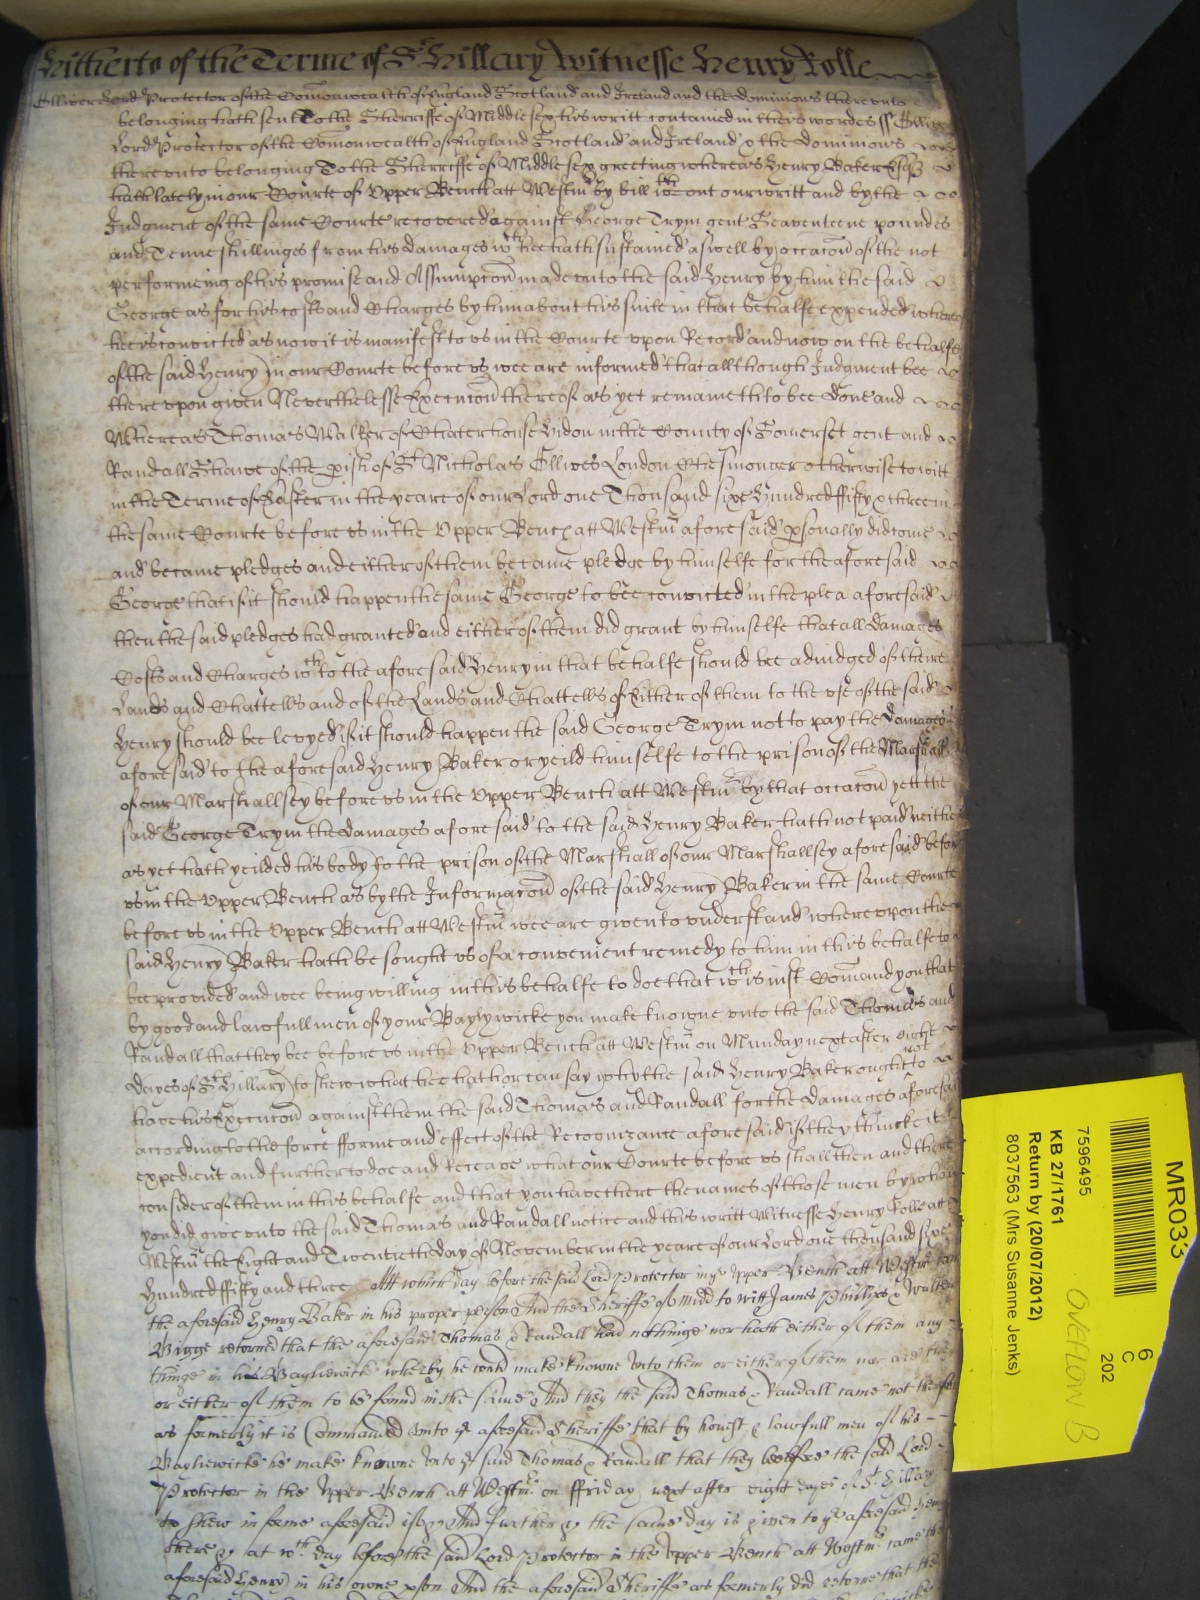 Hitherto of the Terme of St Hillary Witnesse Henry Rolle
Olliver Lord Protector of the Comonwealth of England Scotland and Ireland and the dominions there unto
belonging hath sent To the Sherriffe of Middlesex his writt contained in theis wordes ss Olliver
Lord Protector of the Comonwealth of England Scotland and Ireland & the Dominions
there unto belonging To the Sherriffe of Middlesex greeting whereas Henry Baker Esqr
hath lately in our Courte of Upper Bench att Westm by bill wthout our writt and by the
Judgment of the same Courte recovered against George Trym gent Seaventeene poundes
and Tenne shillinges from his damages wch hee hath sustained aswell by occacon of the not
performeing of his promise and Assumpcon made unto the said Henry by him the said
George as for his costs and Charges by him about his suite in that behalfe expended whereof
hee is convicted as now it is manifest to us in the Courte upon Record and now on the behalfe
of the said Henry in our Courte before us wee are informed that allthough Judgment bee
there upon given Neverthelesse Execucon thereof as yet remaineth to bee done and
Whereas Thomas Walker of Chaterhouse Hidon in the County of Somerset gent and
Randall Shawe of the pish of St Nicholas Ollives London Cheesmonger otherwise to witt
in the Terme of Easter in the yeare of our Lord one Thousand sixe Hundred fifty & three in
the same Courte before us in the Upper Bench att Westm aforesaid psonally did come
and became pledges and either of them became pledge by himselfe for the aforesaid
George that if it should happen the same George to bee convicted in the plea aforesaid
then the said pledges had granted and either of them did grant by himselfe that all damages
Costs and Charges wch to the aforesaid Henry in that behalfe should bee adiudged of their
Lands and Chattells and of the Lands and Chattells of Either of them to the use of the said
Henry should bee levyed if it should happen the said George Trym not to pay the damages
aforesaid to the aforesaid Henry Baker or yeild himselfe to the prison of the Marshall
of our Marshallsey before us in the Upper Bench att Westm by that occacon yett the
said George Trym the damages aforesaid to the said Henry Baker hath not paid neither
as yet hath yeilded his body to the prison of the Marshall of our Marshallsey aforesaid before
us in the Upper Bench as by the Informacon of the said Henry Baker in the same Courte
before us in the Upper Bench att Westm wee are given to understand whereupon the
said Henry Baker hath besought us of a convenient remedy to him in this behalfe to
bee provided and wee being willing in this behalfe to doe that wch is iust Comand you that
by good and lawfull men of your Baylywicke you make knowne unto the said Thomas and
Randall that they bee before us in the Upper Bench att Westm on Munday next after eight
dayes of St Hillary to shew what hee hath or can say why the said Henry Baker ought not to
have his Execucon against them the said Thomas and Randall for the damages aforesaid
according to the force fforme and effect of the Recognizance aforesaid if they thincke it
expedient and further to doe and Receave what our Courte before us shall then and there
consider of them in this behalfe and that you have there the names of those men by whom
you did give unto the said Thomas and Randall notice and this writt Witnesse Henry Rolle att
Westm the Eight and Twentieth day of November in the yeare of our Lord one thousand sixe
Hundred fiffty and three Att which day before the said Lord Protector in ye Upper Bench att Westm came
the aforesaid Henry Baker in his proper person And the Sheriffe of Midd to witt James Phillips & Walter
Bigge retorned that the aforesaid Thomas & Randall had nothinge nor hath either of them any
thinge in his Bayliewick whereby he could make knowne unto them or either of them nor are they
or either of them to be found in the same And they the said Thomas & Randall came not therefore
as formerly it is Commanded unto ye aforesaid Sheriffe that by honest & lawfull men of his
Bayliewicke he make knowne unto ye said Thomas & Randall that they be before the said Lord
Protector in the Upper Bench att Westm on ffriday next after eight dayes of St Hillary
to shew in forme aforesaid if &c And further &c the same day is given to ye aforesaid Henry
there &c at wch day before the said Lord Protector in the Upper Bench att Westm came the
aforesaid Henry in his owne pson And the aforesaid Sheriffe as formerly did retorne that the
MR033
6
C
202
7596495
KB 27/1761
Return by (20/07/2012)
8037563 (Mrs Susanne Jenks)
Overflow B